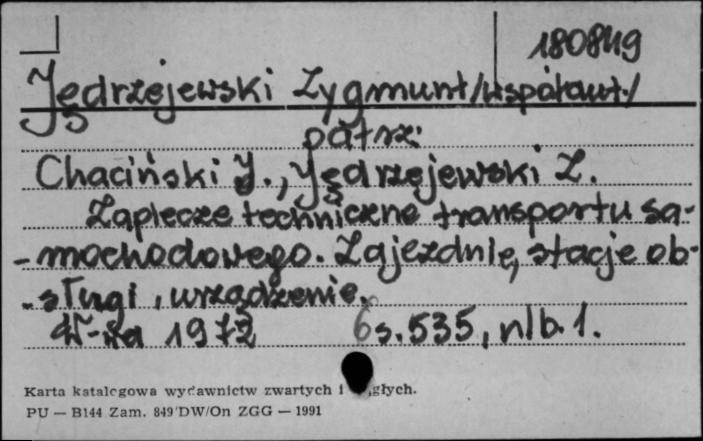 180849
Jędrzejewski Zygmunt/współaut./
patrz:
Chaciński J., Jędrzejewski Z.
Zaplecze techniczne transportu sa-
-mochodowego. Zajezdnie, stacje ob-
-sługi, urządzenie.
W-wa 1972 s. 535, nlb. 1.
Karta katalogowa wydawnictw zwartych i
PU — B144 Zam. 849/DW/On ZGG — 1991